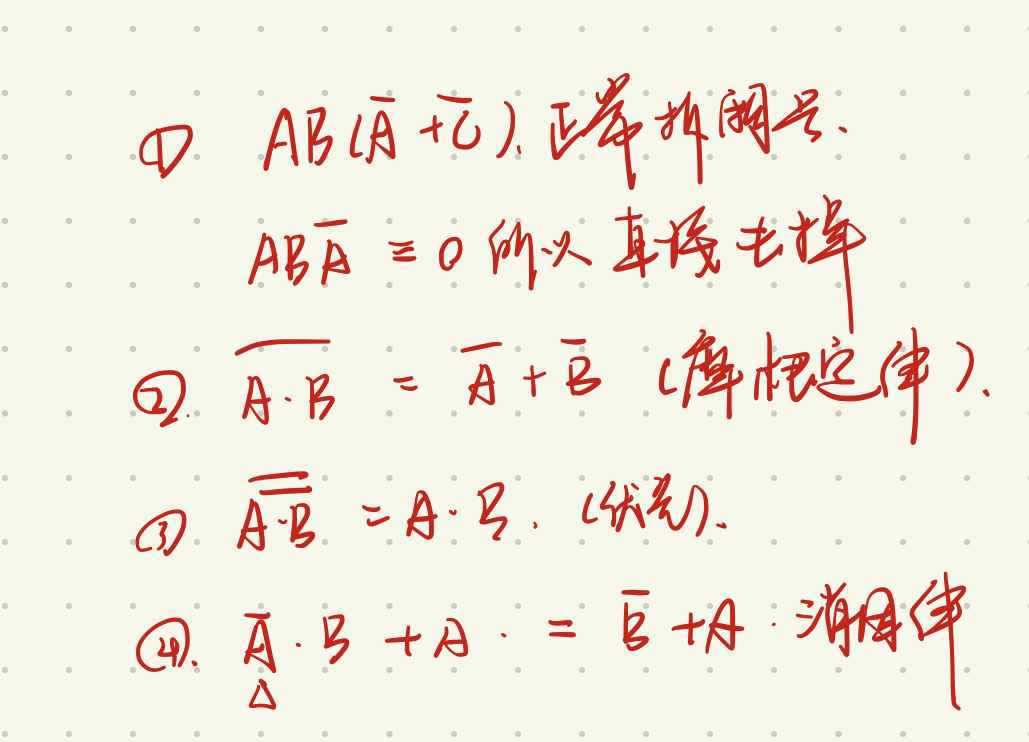 ① AB(A̅+C̅). 正常拆括号.
ABA̅ ≡ 0 所以直接去掉
②. \overline{A·B} = A̅ + B̅ (摩根定律).
③ \overline{\overline{A·B}} = A·B. (优先).
④. A̅·B + A· = B̅ + A· 消因律
△